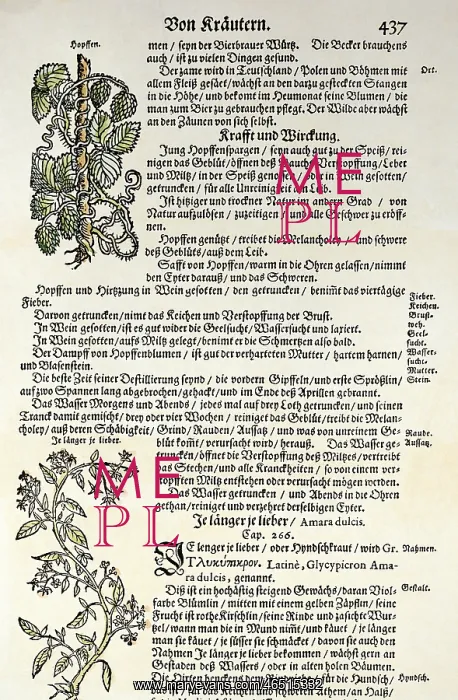 Von Kräutern.
437
Hopffen.
men / seyn der Bierbrauer Würtz. Die Becker brauchens
auch / ist zu vielen Dingen gesund.
Der zame wird in Teutschland / Polen und Böhmen mit
allem Fleiß gesäet / wächst an den darzu gesteckten Stangen
in die Höhe / und bekomt im Heumonat seine Blumen / die
man zum Bier zu gebrauchen pflegt. Der Wilde aber wächst
an den Zäunen von sich selbst.
Ort.
Krafft und Wirckung.
Jung Hopffenspargen / seyn auch gut zu der Speiß / rei-
nigen das Geblüt / öffnen deß Bauchs Verstopffung / Leber
und Miltz / in der Speiß genossen / oder in Wein gesotten /
getruncken / für alle Unreinigkeit im Leib.
Ist hitziger und trockner Natur im andern Grad / von
Natur auffzulösen / zuzeitigen / und alle Geschwer zu eröff-
nen.
Hopffen genützt / treibet die Melancholey / und schwere
deß Geblüts / auß dem Leib.
Safft von Hopffen / warm in die Ohren gelassen / nimmt
den Eyter darauß / und das Schweren.
Hopffen und Hirtzzung in Wein gesotten / den getruncken / benimt das viertägige
Fieber.
Darvon getruncken / nimt das Keichen und Verstopffung der Brust.
In Wein gesotten / ist es gut wider die Geelsucht / Wassersucht und laxiert.
In Wein gesotten / auffs Miltz gelegt / benimt er die Schmertzen also bald.
Der Dampff von Hopffenblumen / ist gut der verharteten Mutter / hartem harnen /
und Blasenstein.
Fieber.
Keichen.
Brust-
weh.
Geel-
sucht.
Wasser-
sucht.
Mutter.
Stein.
Die beste Zeit seiner Destillierung seynd / die vordern Gipffeln / und erste Sprößlin /
auf zwo Spannen lang abgebrochen / gehackt / und im Ende deß Aprillen gebrannt.
Das Wasser Morgens und Abends / jedes mal auf drey Loth getruncken / und seinen
Tranck damit gemischt / drey oder vier Wochen / reiniget das Geblüt / treibt die Melan-
choley / auß deren Schäbigkeit / Grind / Rauden / Aussatz / und was von unreinem Ge-
Raude.
Aussatz.
Je länger je lieber.
blüt komt / verursacht wird / herauß. Das Wasser ge-
truncken / öffnet die Verstopffung deß Miltzes / vertreibt
das Stechen / und alle Kranckheiten / so von einem ver-
stopfften Miltz entstehen oder verursacht mögen werden.
Das Wasser getruncken / und Abends in die Ohren
gethan / reiniget und verzehret derselbigen Eyter.
Je länger je lieber / Amara dulcis.
Cap. 266.
JE lenger je lieber / oder Hyndschkraut / wird Gr.
Γλυκύπικρον. Latinè, Glycypicron Ama-
ra dulcis, genannt.
Nahmen.
Diß ist ein hochästig steigend Gewächs / daran Viol-
farbe Blümlin / mitten mit einem gelben Zäpflin / seine
Frucht ist rothe Kirschlin / seine Rinde und zasichte Wur-
tzel / wann man die in Mund nimt / und käuet / je länger
man sie käuet / je süsser sie schmäcket / davon sie auch den
Nahmen Je länger je lieber bekommen / wächst gern an
Gestaden deß Wassers / oder in alten holen Bäumen.
Gestalt.
Die Hirten hencken dem Rindviehe / für die Hundsch /
Hyndsch.
ME
PL
ME
PL
www.maryevans.com/46515332